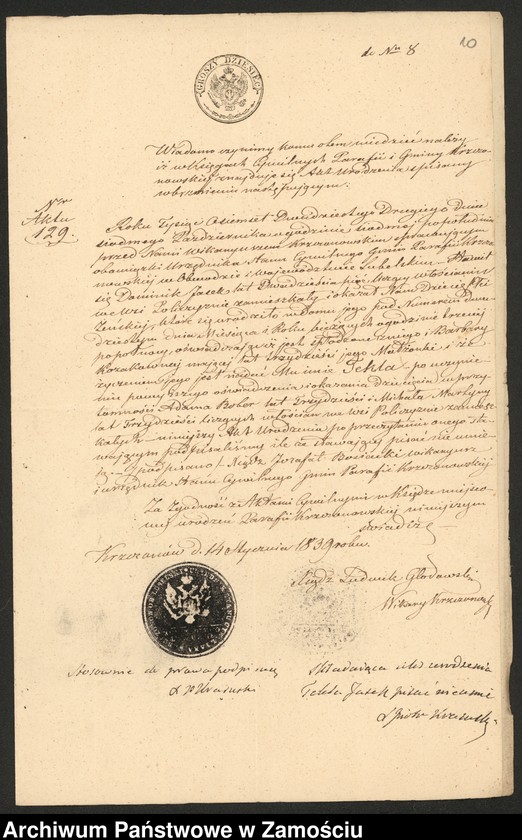 20
do Nru 8
GROSZY DZIESIĘĆ
Wiadomo czynimy komu o tem wiedzieć należy
iż w Księgach Cywilnych Parafii i Gminy Krzczo-
nowskiej znajduje się Akt Urodzenia spisany
w brzmieniu następującym.
Nro
Aktu
129.
Roku Tysiąc Ośmset Dwudziestego Drugiego Dnia
siódmego Października o godzinie siódmej popołudniu
przed Nami Wikaryuszem Krzczonowskim sprawującym
obowiązki Urzędnika Stanu Cywilnego Gminy Parafii Krzczo-
nowskiej w Obwodzie i Województwie Lubelskim Stawił
się Dominik Jasek lat Dwadzieścia pięć mający włościanin
we wsi Policzyźnie zamieszkały i okazał Nam Dziecię Płci
Żeńskiej, które się urodziło w Domu jego pod Numerem dwu-
dziestym dnia Miesiąca i Roku bieżących o godzinie trzeciej
popołudniu oświadczając iż jest spłodzone z niego i Barbary
mającej lat trzydzieści jego Małżonki, i że
życzeniem jego jest nadać Mu imie Tekla po uczynie-
niu powyższego oświadczenia i okazaniu dziecięcia w przy-
tomności Adama Bober lat Trzydzieści i Michała
lat Trzydzieści liczących włościan we wsi Policzyźnie zamiesz-
kałych niniejszy Akt Urodzenia po przeczytaniu onego sta-
wającym podpisaliśmy ile że stawający pisać nie umie-
ją podpisano Xiądz Jozafat wikaryusz
i urzędnik Stanu Cywilnego gminy Parafii Krzczonowskiej
Za Zgodność z Aktami Cywilnymi w Księdze miejsco-
wej urodzeń Parafii Krzczonowskiej niniejszym
świadczę
Krzczonów d. 14 Stycznia 1839 roku.
Xiądz Ludwik Głodowski
Wikary Krzczonowski
Stosownie do prawa podpisuję
Składająca akt urodzenia
Tekla Jasek pisać nieumie
Archiwum Państwowe w Zamościu